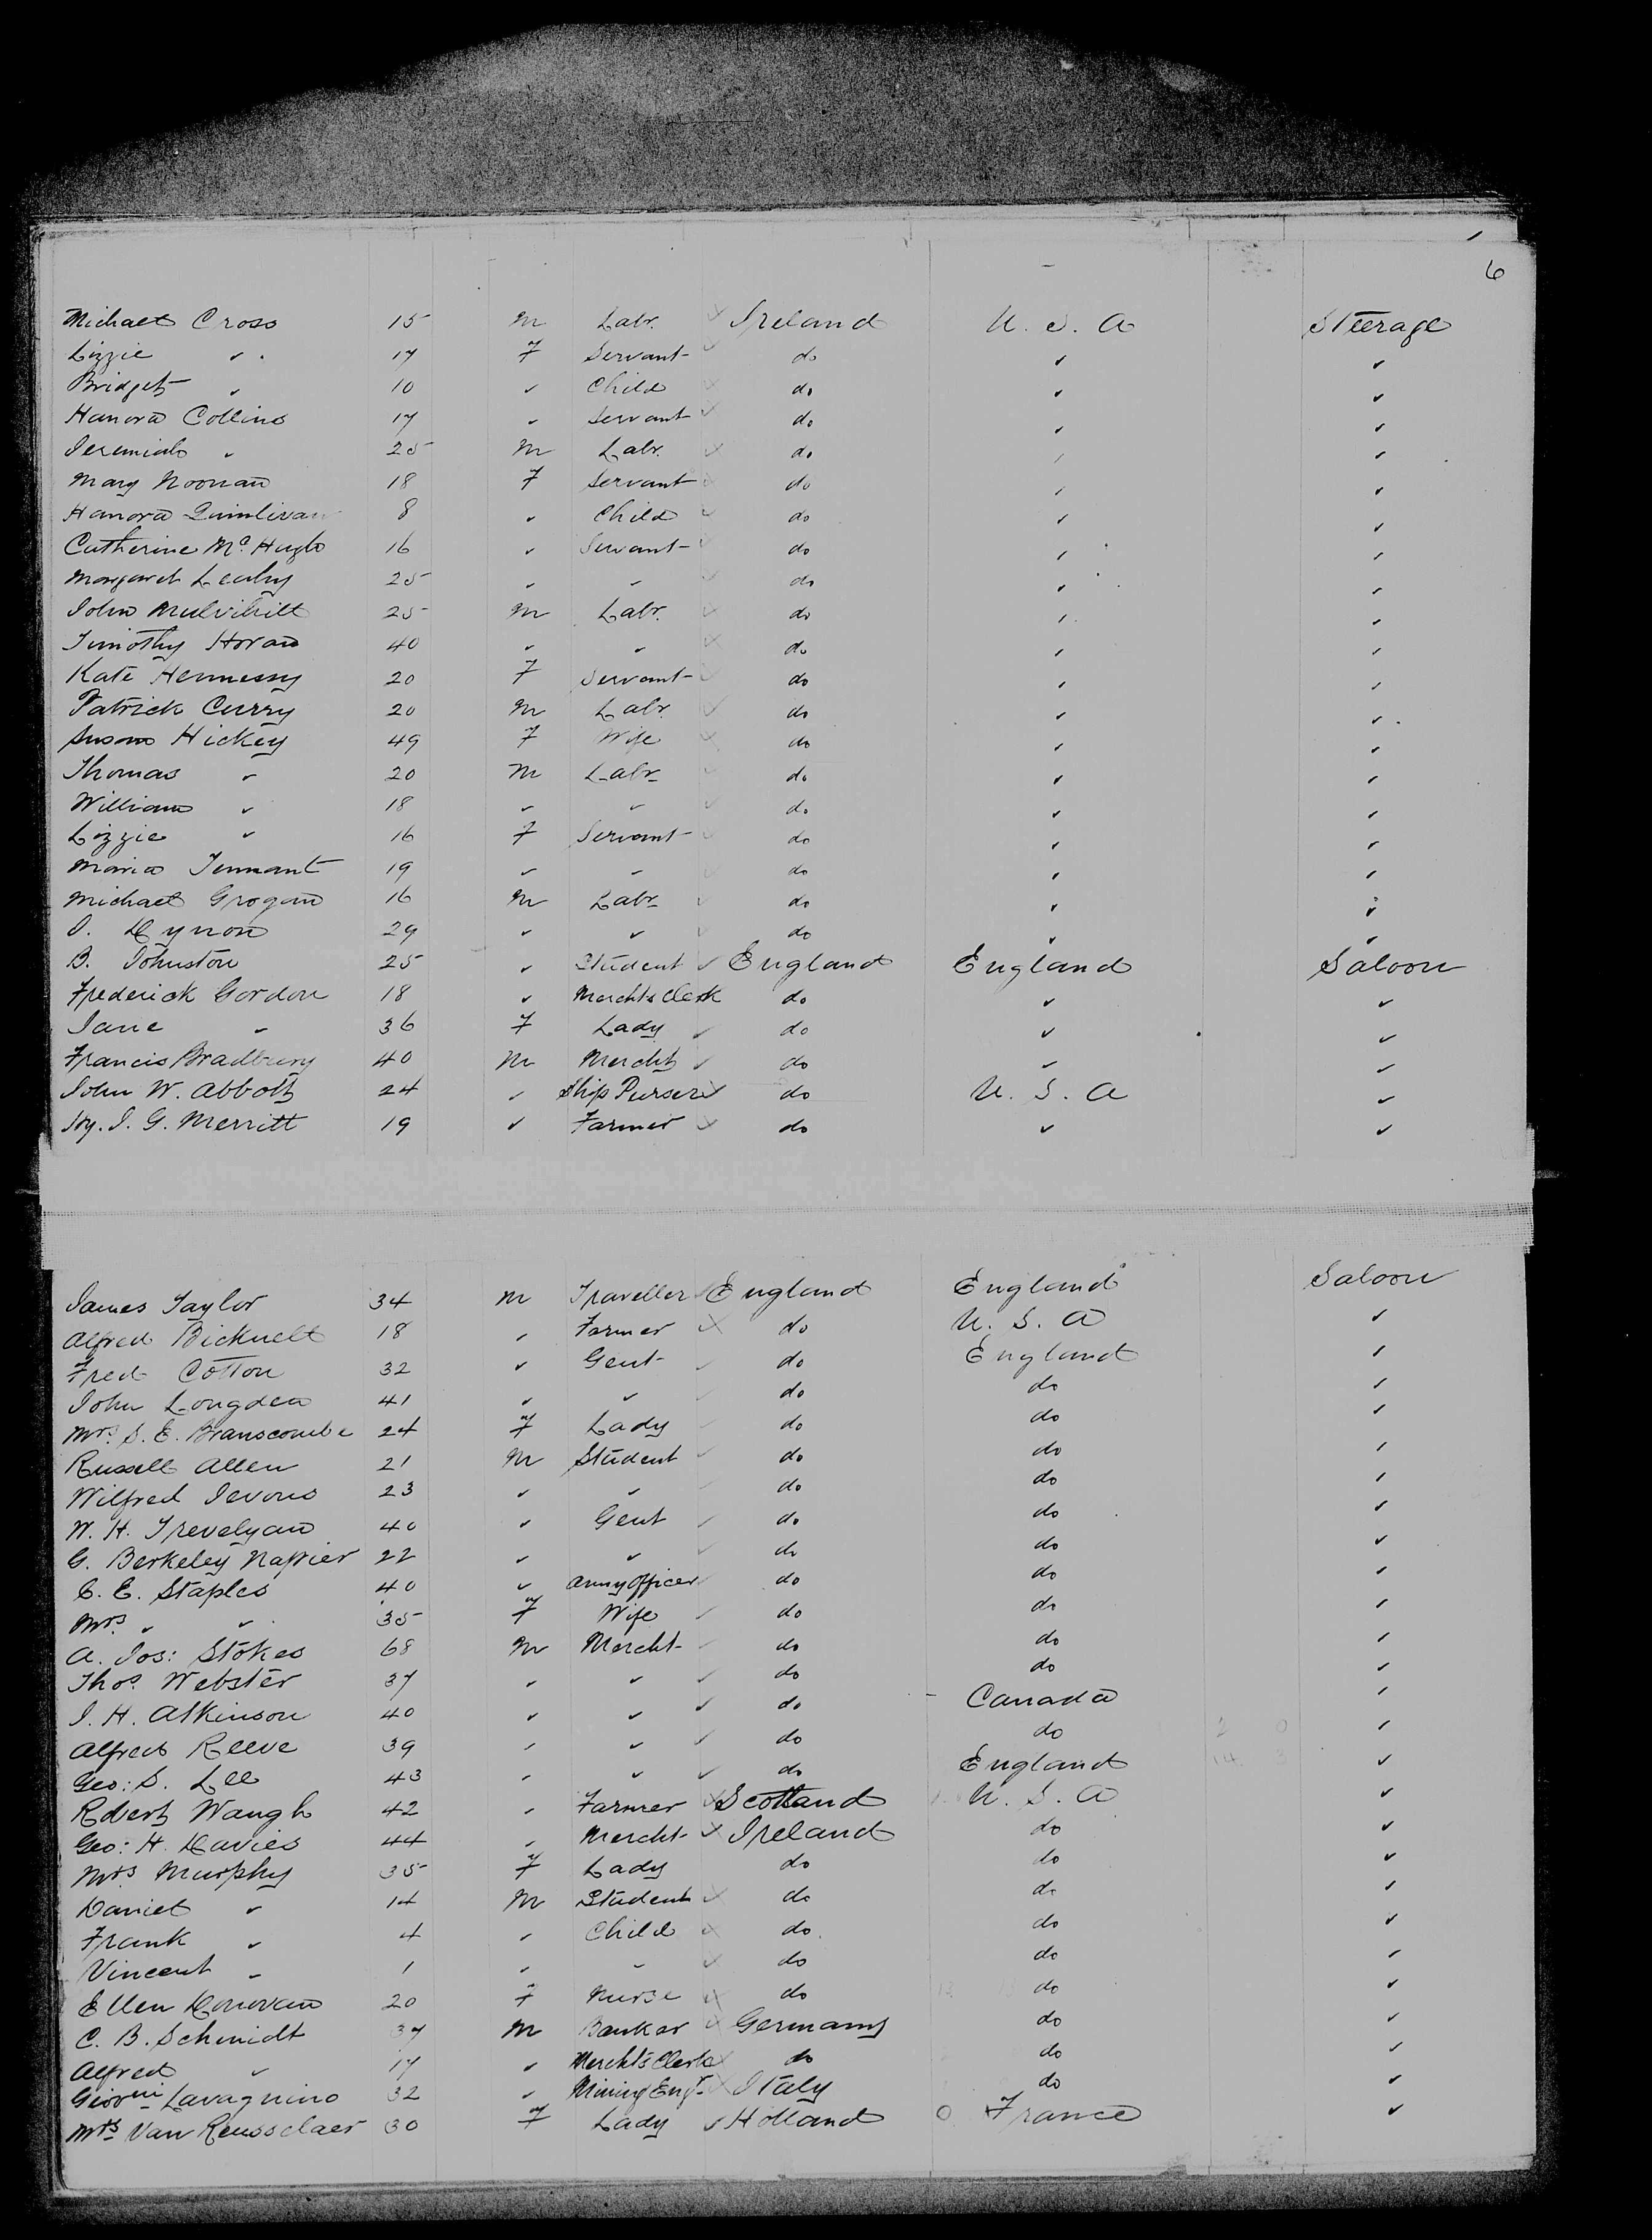 6
Michael Cross 15 M Labr. Ireland U. S. A Steerage
Lizzie " 17 F Servant do " "
Bridget " 10 " Child do " "
Hanora Collins 17 " Servant do " "
Jeremiah " 25 M Labr. do " "
Mary Noonan 18 F Servant do " "
Hanora Quinlivan 8 " Child do " "
Catherine McHugh 16 " Servant do " "
Margaret Leahy 25 " " do " "
John Mulvihill 25 M Labr. do " "
Timothy Horan 40 " " do " "
Kate Hennessy 20 F Servant do " "
Patrick Curry 20 M Labr. do " "
Susan Hickey 49 F Wife do " "
Thomas " 20 M Labr do " "
William " 18 " " do " "
Lizzie " 16 F Servant do " "
Maria Tennant 19 " " do " "
Michael Grogan 16 M Labr do " "
D. Dynon 29 " " do " "
B. Johnston 25 " Student England England Saloon
Frederick Gordon 18 " Mercht's Clerk do " "
Jane " 36 F Lady do " "
Francis Bradbury 40 M Mercht do " "
John W. Abbott 24 " Ship Purser do U. S. A "
Hy. J. G. Merritt 19 " Farmer do " "
James Taylor 34 M Traveller England England Saloon
Alfred Bicknell 18 " Farmer do U. S. A "
Fred Cotton 32 " Gent do England "
John Longden 41 " " do do "
Mrs. S. E. Branscombe 24 F Lady do do "
Russell Allen 21 M Student do do "
Wilfred Jevons 23 " " do do "
W. H. Trevelyan 40 " Gent do do "
G. Berkeley Napier 22 " " do do "
E. E. Staples 40 " Army Officer do do "
Mrs " " 35 F Wife do do "
A. Jos: Stokes 68 M Mercht do do "
Thos. Webster 37 " " do do "
J. H. Atkinson 40 " " do Canada "
Alfred Reeve 39 " " do do "
Geo: S. Lee 43 " " do England "
Robert Waugh 42 " Farmer Scotland U. S. A "
Geo: H. Davies 44 " Mercht Ireland do "
Mrs Murphy 35 F Lady do do "
Daniel " 14 M Student do do "
Frank " 4 " Child do do "
Vincent " 1 " " do do "
Ellen Donovan 20 F Nurse do do "
C. B. Schmidt 37 M Banker Germany do "
Alfred " 17 " Mercht's Clerk do do "
Giovni Lavagnino 32 " Mining Engr Italy do "
Mrs Van Rensselaer 30 F Lady Holland France "